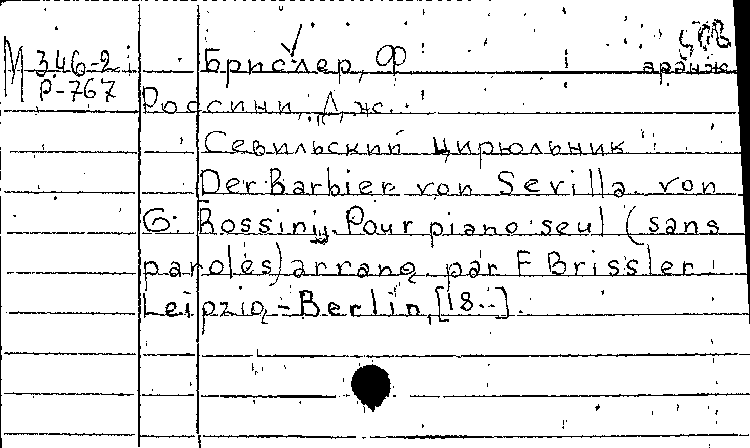 М 346-2 Брислер, Ф
Р-767 аранж
Россини, Дж.
"Севильский цирюльник"
Der Barbier von Sevilla von
G. Rossini. Pour piano seul (sans
paroles) arrang. par F Brissler
Leipzig-Berlin, [18..].